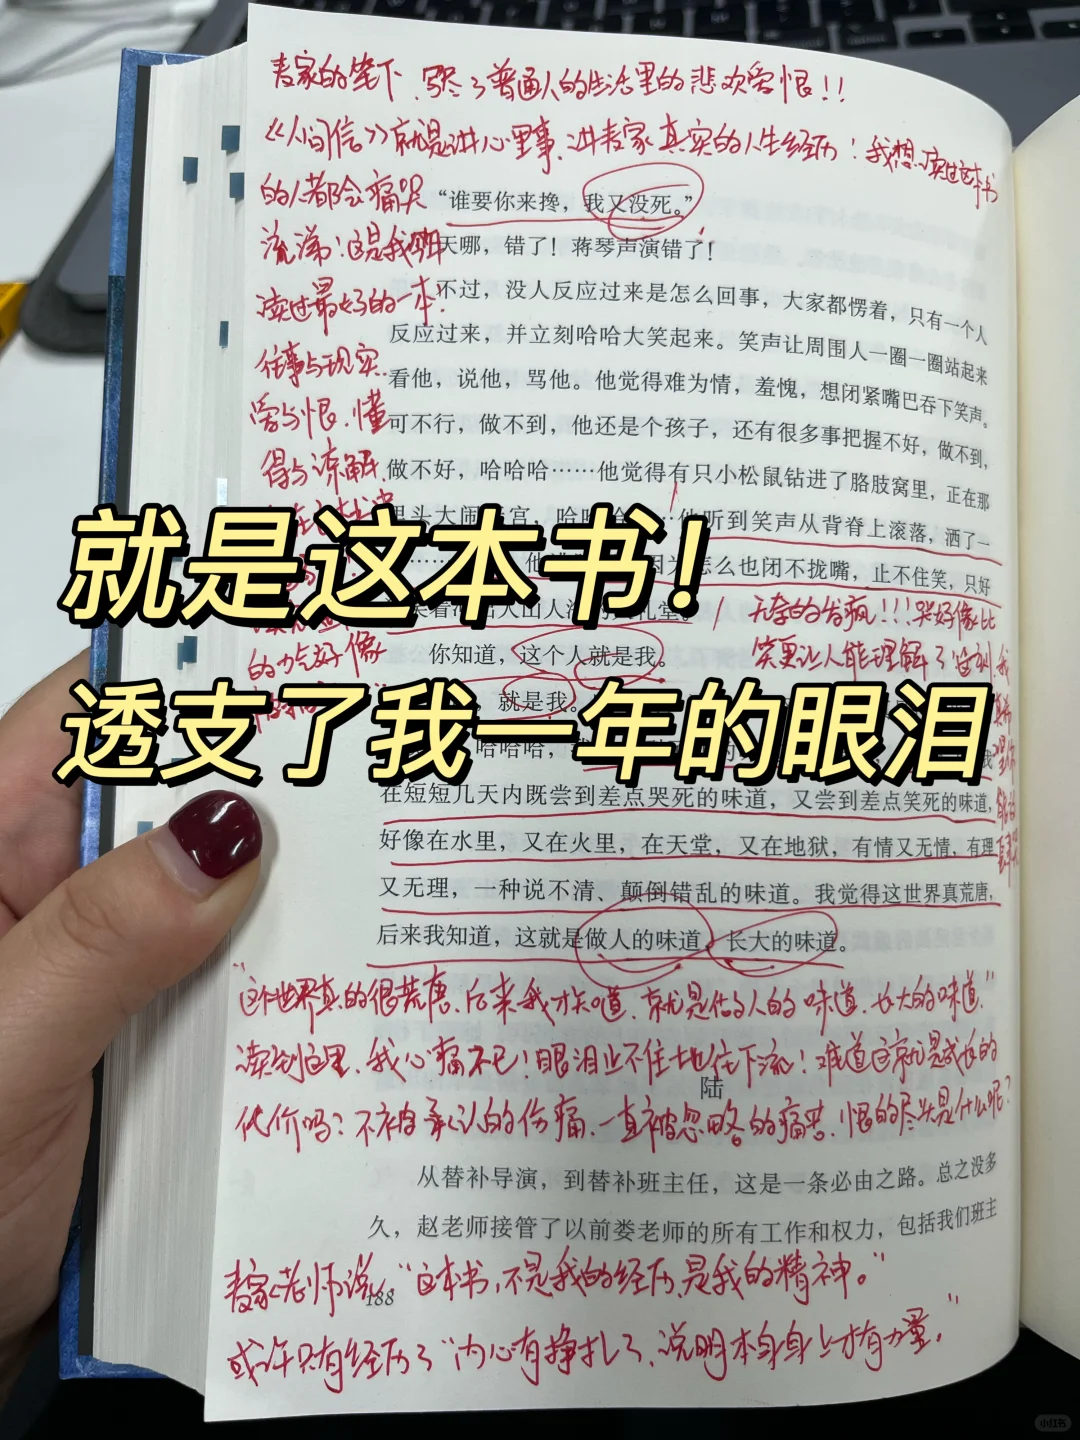 麦家的笔下,写尽了普通人的生活里的悲欢爱恨!!
《人间信》就是讲心里事,讲麦家真实的人生经历!我想,读过这本书
的人都会痛哭
流涕!这是我
读过最好的一本!
往事与现实.
爱与恨.懂
得与谅解.
的力气好像
“谁要你来搀,我又没死。”
天哪,错了!蒋琴声演错了!
不过,没人反应过来是怎么回事,大家都愣着,只有一个人
反应过来,并立刻哈哈大笑起来。笑声让周围人一圈一圈站起来
看他,说他,骂他。他觉得难为情,羞愧,想闭紧嘴巴吞下笑声。
可不行,做不到,他还是个孩子,还有很多事把握不好,做不到,
做不好,哈哈哈……他觉得有只小松鼠钻进了胳肢窝里,正在那
他听到笑声从背脊上滚落,洒了一
怎么也闭不拢嘴,止不住笑,只好
就是这本书!
无奈的发疯!!!哭好像比
笑更让人能理解了
你知道,这个人就是我。
就是我。
透支了我一年的眼泪
哈哈哈,
在短短几天内既尝到差点哭死的味道,又尝到差点笑死的味道,
好像在水里,又在火里,在天堂,又在地狱,有情又无情,有理
又无理,一种说不清、颠倒错乱的味道。我觉得这世界真荒唐,
后来我知道,这就是做人的味道,长大的味道。
“这个世界真的很荒唐,后来我才知道,就是做人的味道,长大的味道.”
读到这里,我心痛不已!眼泪止不住地往下流!难道这就是成长的
代价吗?不被承认的伤痛,一直被忽略的痛苦,恨的尽头是什么呢?
陆
从替补导演,到替补班主任,这是一条必由之路。总之没多
久,赵老师接管了以前娄老师的所有工作和权力,包括我们班主
麦家老师说,“这本书,不是我的经历,是我的精神。”
188
或许只有经历了“内心有挣扎了,说明本身身上才有力量.”
小红书